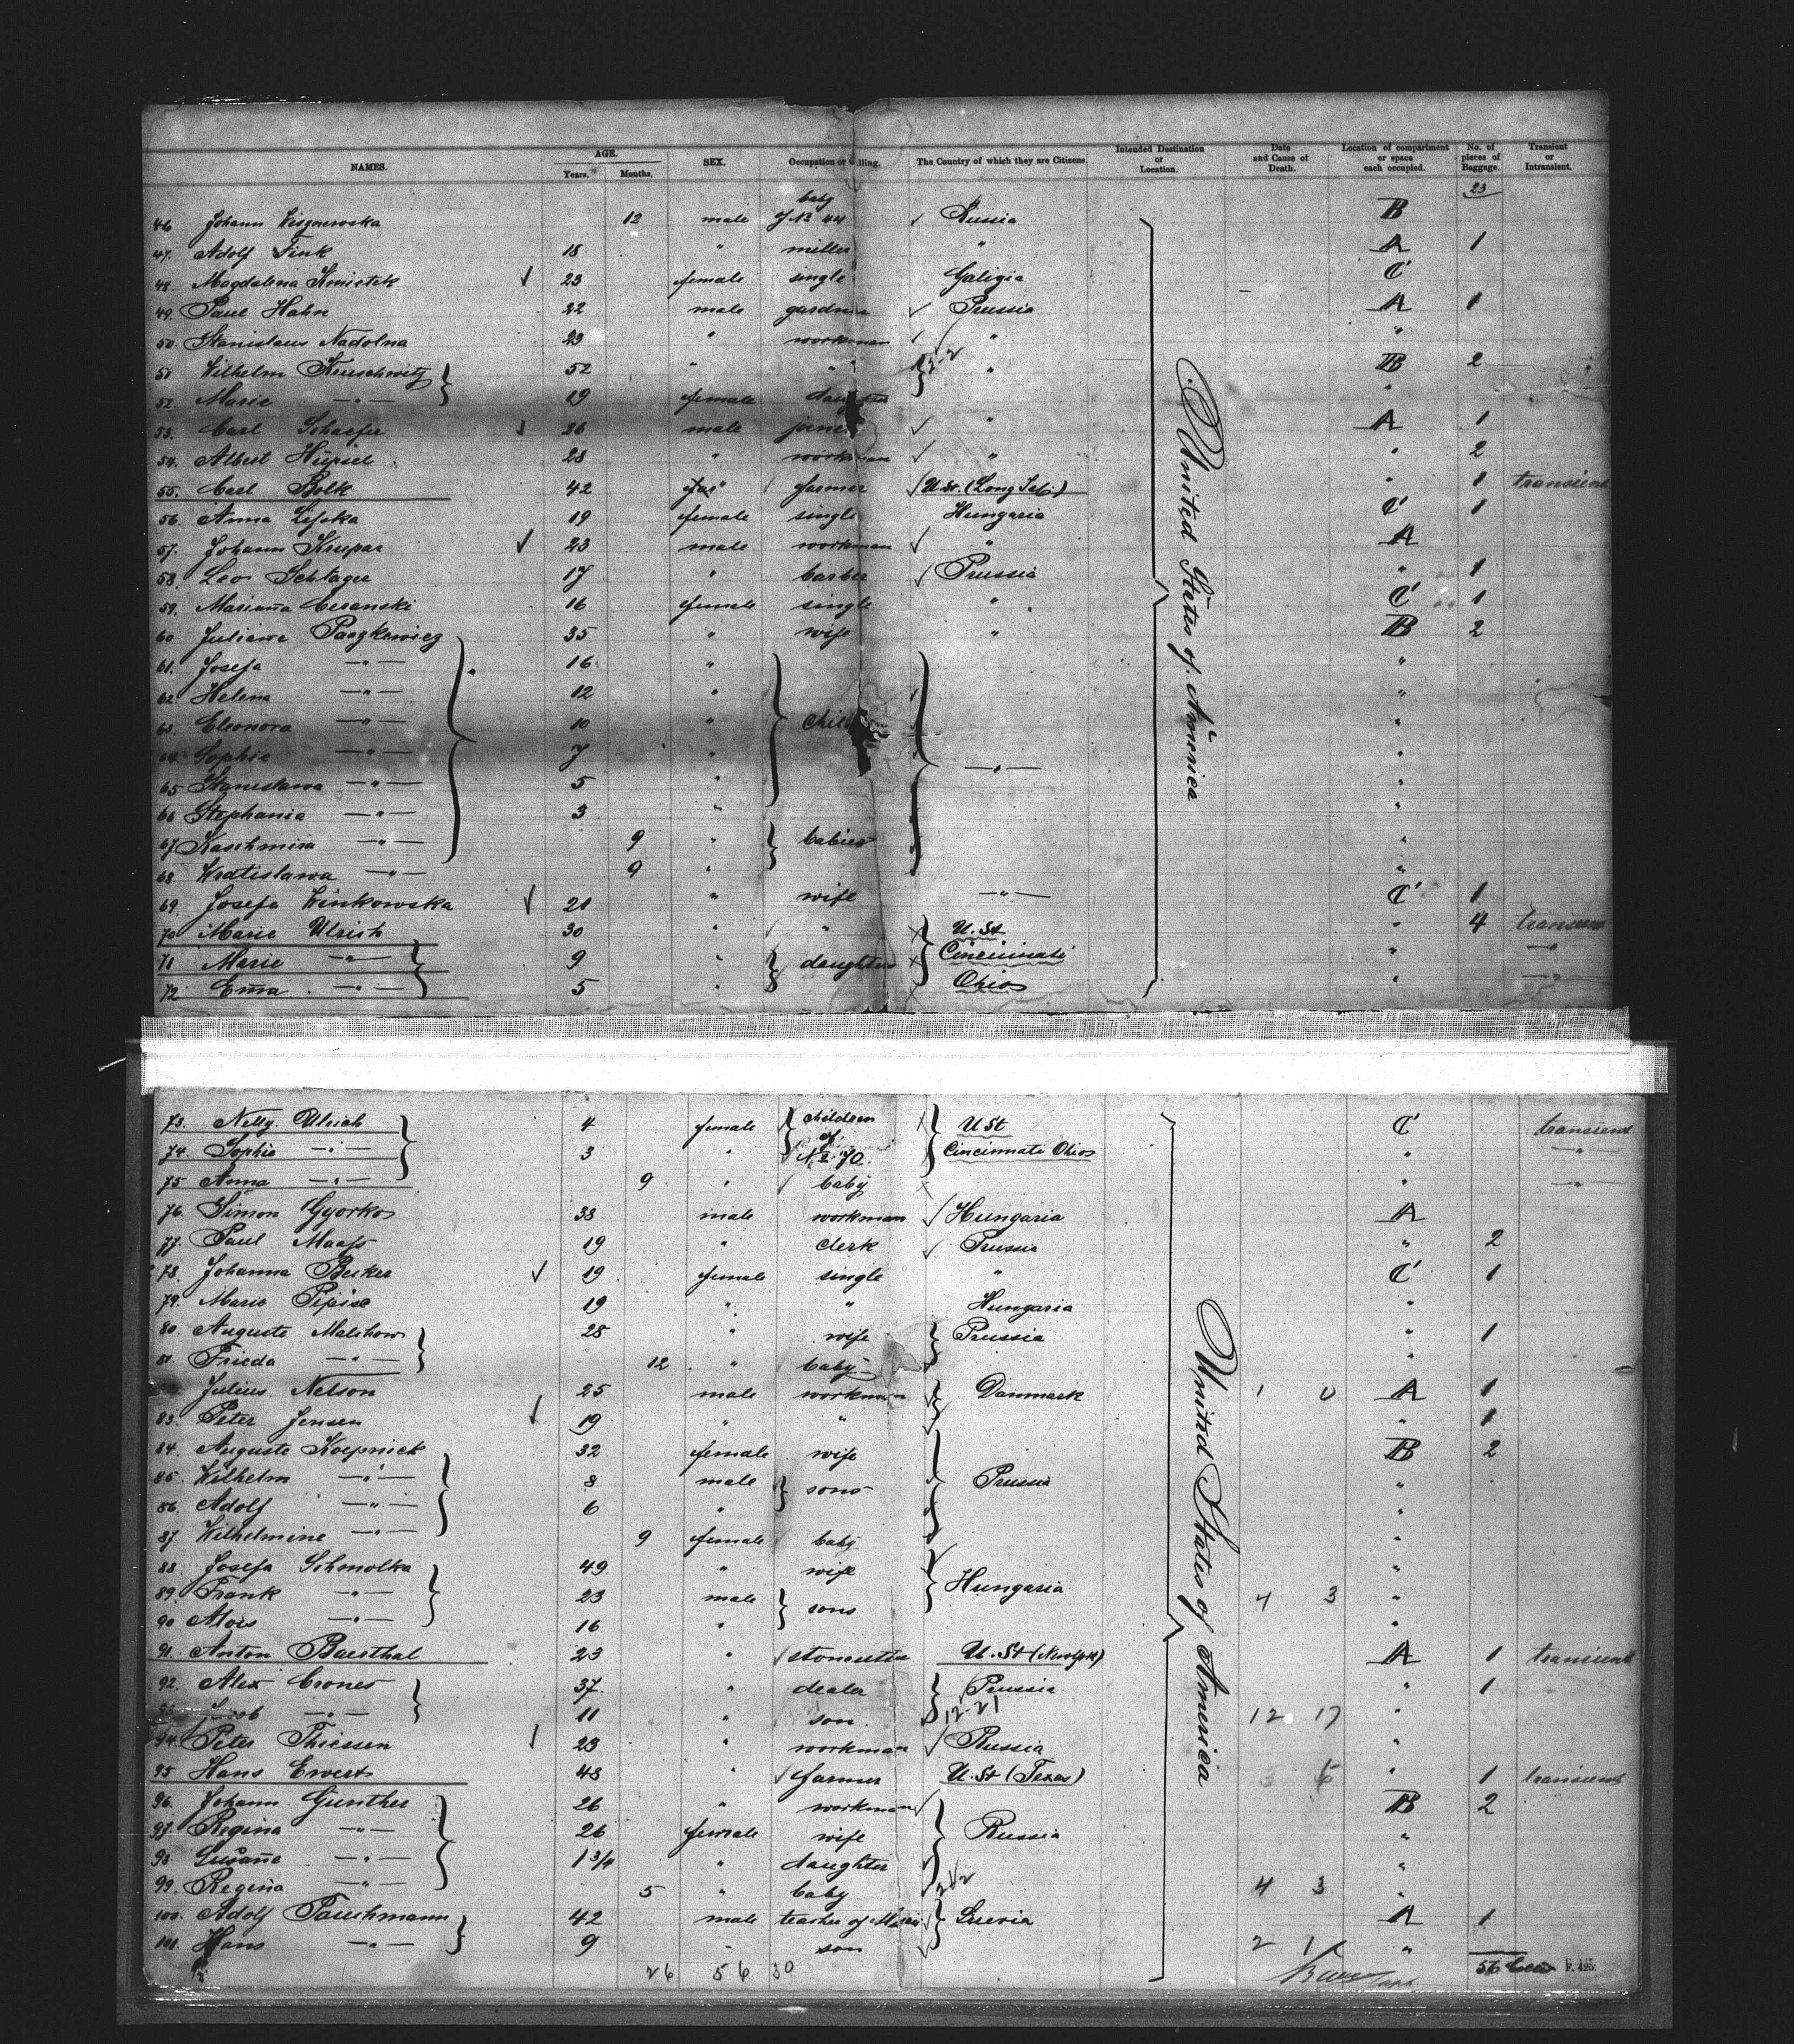 NAMES. AGE. Years. Months. SEX. Occupation or Calling. The Country of which they are Citizens. Intended Destination or Location. Date and Cause of Death. Location of compartment or space each occupied. No. of pieces of Baggage. Transient or Intransient.
23
46 Johann Wisgnewska 12 male baby of No 44 Russia B
47. Adolf Fink 18 " miller " A 1
48. Magdalena Kmiotek 23 female single Galizia C
49. Paul Hahn 22 male gardner Prussia A 1
50. Stanislaus Nadolna 23 " workman " "
51 Wilhelm Kruschwitz 52 " " " B 2
52. Marie " 19 female daughter "
53. Carl Schaefer 26 male joiner " A 1
54. Albert 28 " workman " " 2
55. Carl Bolk 42 " farmer U.St. (Long Isl.) " 1 transient
56. Anna 19 female single Hungaria C 1
57. Johann Krupar 23 male workman " A
58. Leo Schlager 17 " barber Prussia " 1
59. Mariana Ceranski 16 female single " C 1
60 Juliane 35 " wife " B 2
61. Josefa " 16 " "
62. Helena " 12 " "
63. Eleonora " 10 " "
64. Sophie " 7 " "
65 Stanislawa " 5 " "
66 Stephania " 3 " "
67 Kaschmira " 9 " babies "
68. Wratislawa " 9 " "
69. Josefa Winkowska 21 " wife " C 1
70 Marie Ulrich 30 " " U.St. " 4 transient
71 Marie " 9 " daughters Cincinnati " "
72 Ema " 5 " Ohio " "
United States of America
73. Nelly Ulrich 4 female children of No 70. U St C transient
74. Sophie " 3 " Cincinnati Ohio " "
75 Anna " 9 " baby " "
76. Simon Gyorko 38 male workman Hungaria A
77. Paul Maass 19 " clerk Prussia " 2
78. Johanna Becker 19 female single " C 1
79. Marie 19 " " Hungaria "
80. Auguste Malchow 28 " wife Prussia " 1
81. Frieda " 12 " baby "
Julius Nelson 25 male workman Danmark 1 0 A 1
83. Peter Jensen 19 " " " 1
84. Auguste Koepnick 32 female wife B 2
85. Wilhelm " 8 male sons Prussia "
86. Adolf " 6 " "
87. Wilhelmine " 9 female baby "
88. Josefa Schmolka 49 " wife Hungaria "
89. Frank " 23 male sons 4 3 "
90 Alois " 16 " "
91. Anton Baerthal 23 " stonecutter U.St (New York) A 1 transient
92. Alex Crones 37. " dealer Prussia " 1
93 Jacob " 11 " son. 12-21 12. 17 "
94. Peter Thiessen 23 " workman Russia "
95 Hans Ewert 48 " farmer U.St (Texas) " 1 transient
96. Johann Gunther 26 " workman B 2
97. Regina " 26 female wife Russia "
98 Susana " 1 3/4 " daughter "
99. Regina " 5 " baby 4 3 "
100. Adolf 42 male teacher of A 1
101. Hans " 9 " son 2 1 "
26 56 30
56
F. 425.
United States of America